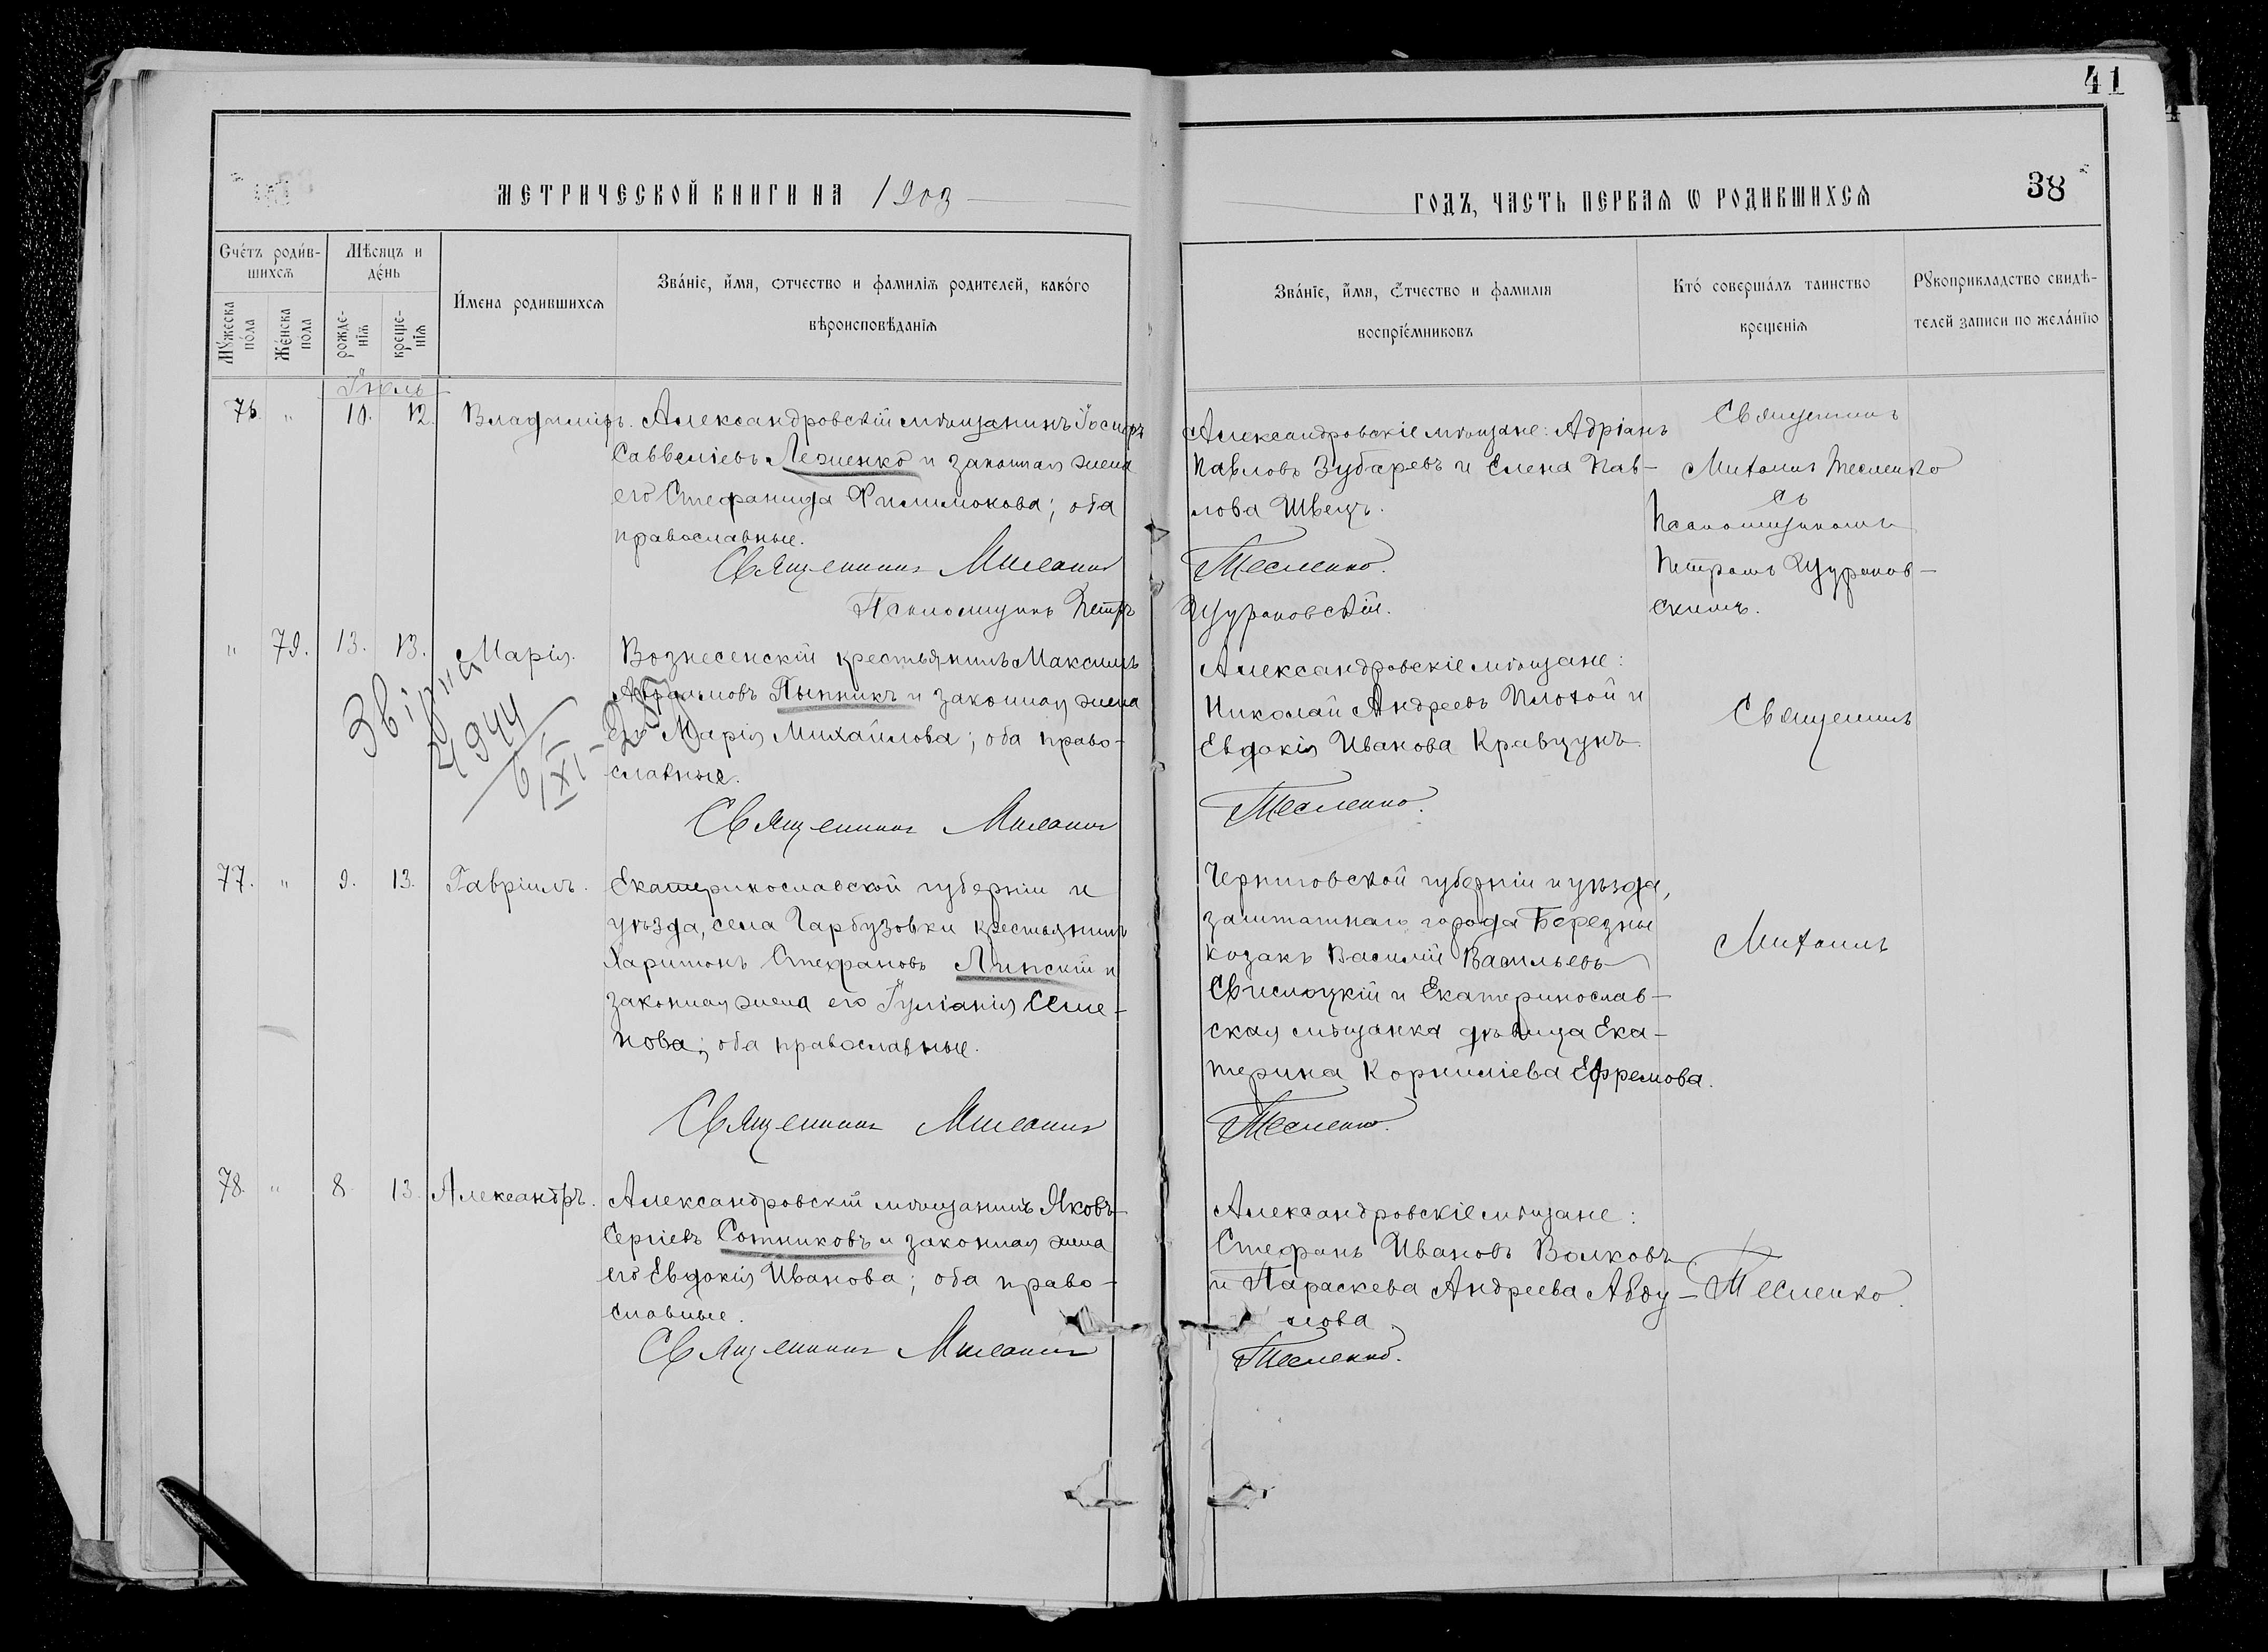 41
МЕТРИЧЕСКОЙ КНИГИ НА 1903
ГОДЪ, ЧАСТЬ ПЕРВАЯ Ѡ РОДИВШИХСЯ
38
Счетъ родив-
шихся
Мѣсяцъ и
день
Имена родившихся
Званіе, имя, отчество и фамилія родителей, какого
вѣроисповѣданія
Званіе, имя, отчество и фамилія
воспріемниковъ
Кто совершалъ таинство
крещенія
Рукоприкладство свидѣ-
телей записи по желанію
Мужеска
пола
Женска
пола
рожде-
нія
креще-
нія
Іюль
76. " 10. 12. Владиміръ. Александровскій мѣщанинъ Іосифъ
Савверіевъ Леженко и законная жена
его Стефанида Филимонова; оба
православные.
Священникъ Михаилъ
Псаломщикъ Петръ
Александровскіе мѣщане: Адріанъ
Павловъ Зубаревъ и Елена Пав-
лова Швецъ.
Тесленко.
Цурановскій.
Священникъ
Михаилъ Тесленко
съ
Псаломщикомъ
Петромъ Цуранов-
скимъ.
" 79. 13. 13. Марія. Вознесенскій крестьянинъ Максимъ
Абрамовъ Пынникъ и законная жена
его Марія Михайлова; оба право-
славные.
Священникъ Михаилъ
Звірпи
1944
6/XI-
Александровскіе мѣщане:
Николай Андреевъ Плохой и
Евдокія Иванова Кравцунъ.
Тесленко.
Священникъ
77. " 9. 13. Гавріилъ. Екатеринославской губерніи и
уѣзда, села Гарбузовки крестьянинъ
Харитонъ Стефановъ Липскій и
законная жена его Іуліанія Семе-
нова; оба православные.
Священникъ Михаилъ
Черниговской губерніи и уѣзда,
заштатнаго города Березны
козакъ Василій Васильевъ
Свислоцкій и Екатеринослав-
ская мѣщанка дѣвица Ека-
терина Корниліева Ефремова.
Тесленко.
Михаилъ
78. " 8 13. Александръ. Александровскій мѣщанинъ Яковъ
Сергіевъ Сотниковъ и законная жена
его Евдокія Иванова; оба право-
славные.
Священникъ Михаилъ
Александровскіе мѣщане:
Стефанъ Ивановъ Волковъ
и Параскева Андреева Абду-
лова
Тесленко.
Тесленко.